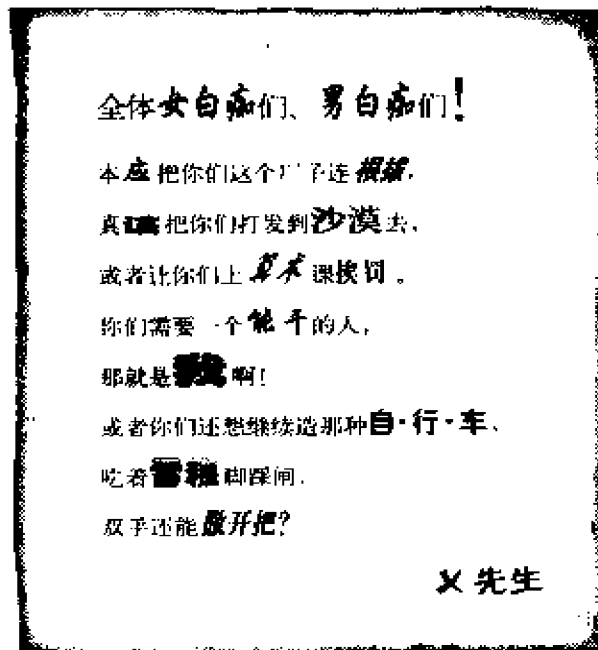 全体女白痴们、男白痴们!
本应把你们这个厂子连根拔,
真该把你们打发到沙漠去,
或者让你们上算术课挨罚。
你们需要一个能干的人,
那就是我啊!
或者你们还想继续造那种自·行·车、
吃着脚踩闸,
双手还能撒开把?
X先生